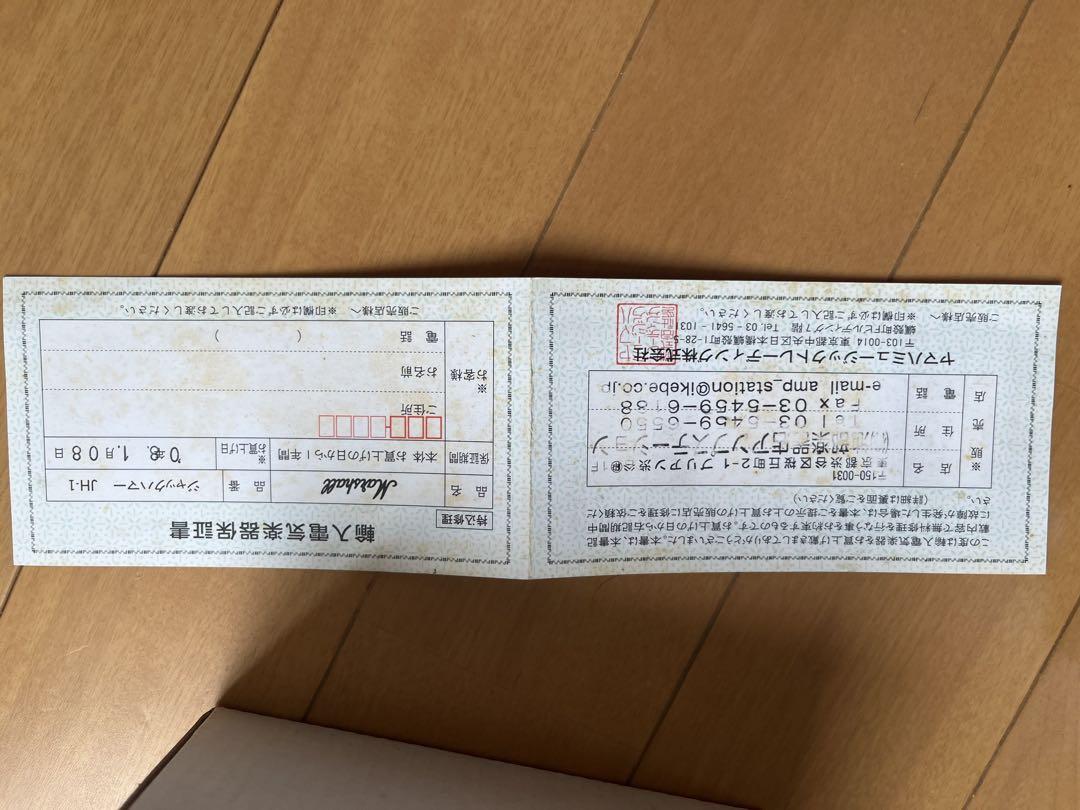 この度は輸入電気楽器をお買上げ戴きましてありがとうございました。本書は、本書記
載内容で無料修理を行なう事をお約束するものです。お買上げの日から右記期間中
に故障が発生した場合は、本書をご提示の上お買上げの販売店に修理をご依頼くだ
さい。 (詳細は裏面をご覧ください)
※ 販売店
店名
住所
電話
〒150-0031
東京都渋谷区桜丘町2-1 ブリアン渋谷1F
池部楽器店アンプステーション
Tel 03-5459-6550
Fax 03-5459-6
e-mail amp_station@ikebe.co.jp
ヤマハミュージックトレーディング株式会社
〒103-0014 東京都中央区日本橋蠣殻町1-28-5
蠣殻町Fビルディング7階 Tel. 03-5641-1031
ご販売店様へ ※印欄は必ずご記入してお渡しください。
輸入電気楽器保証書
持込修理
品名 Marshall
品番 ジャックハマー JH-1
保証期間 本体 お買上げの日から1年間
※お買上げ日 '08年 11月08日
※お客様
ご住所
お名前
電話 ( )
ご販売店様へ ※印欄は必ずご記入してお渡しください。